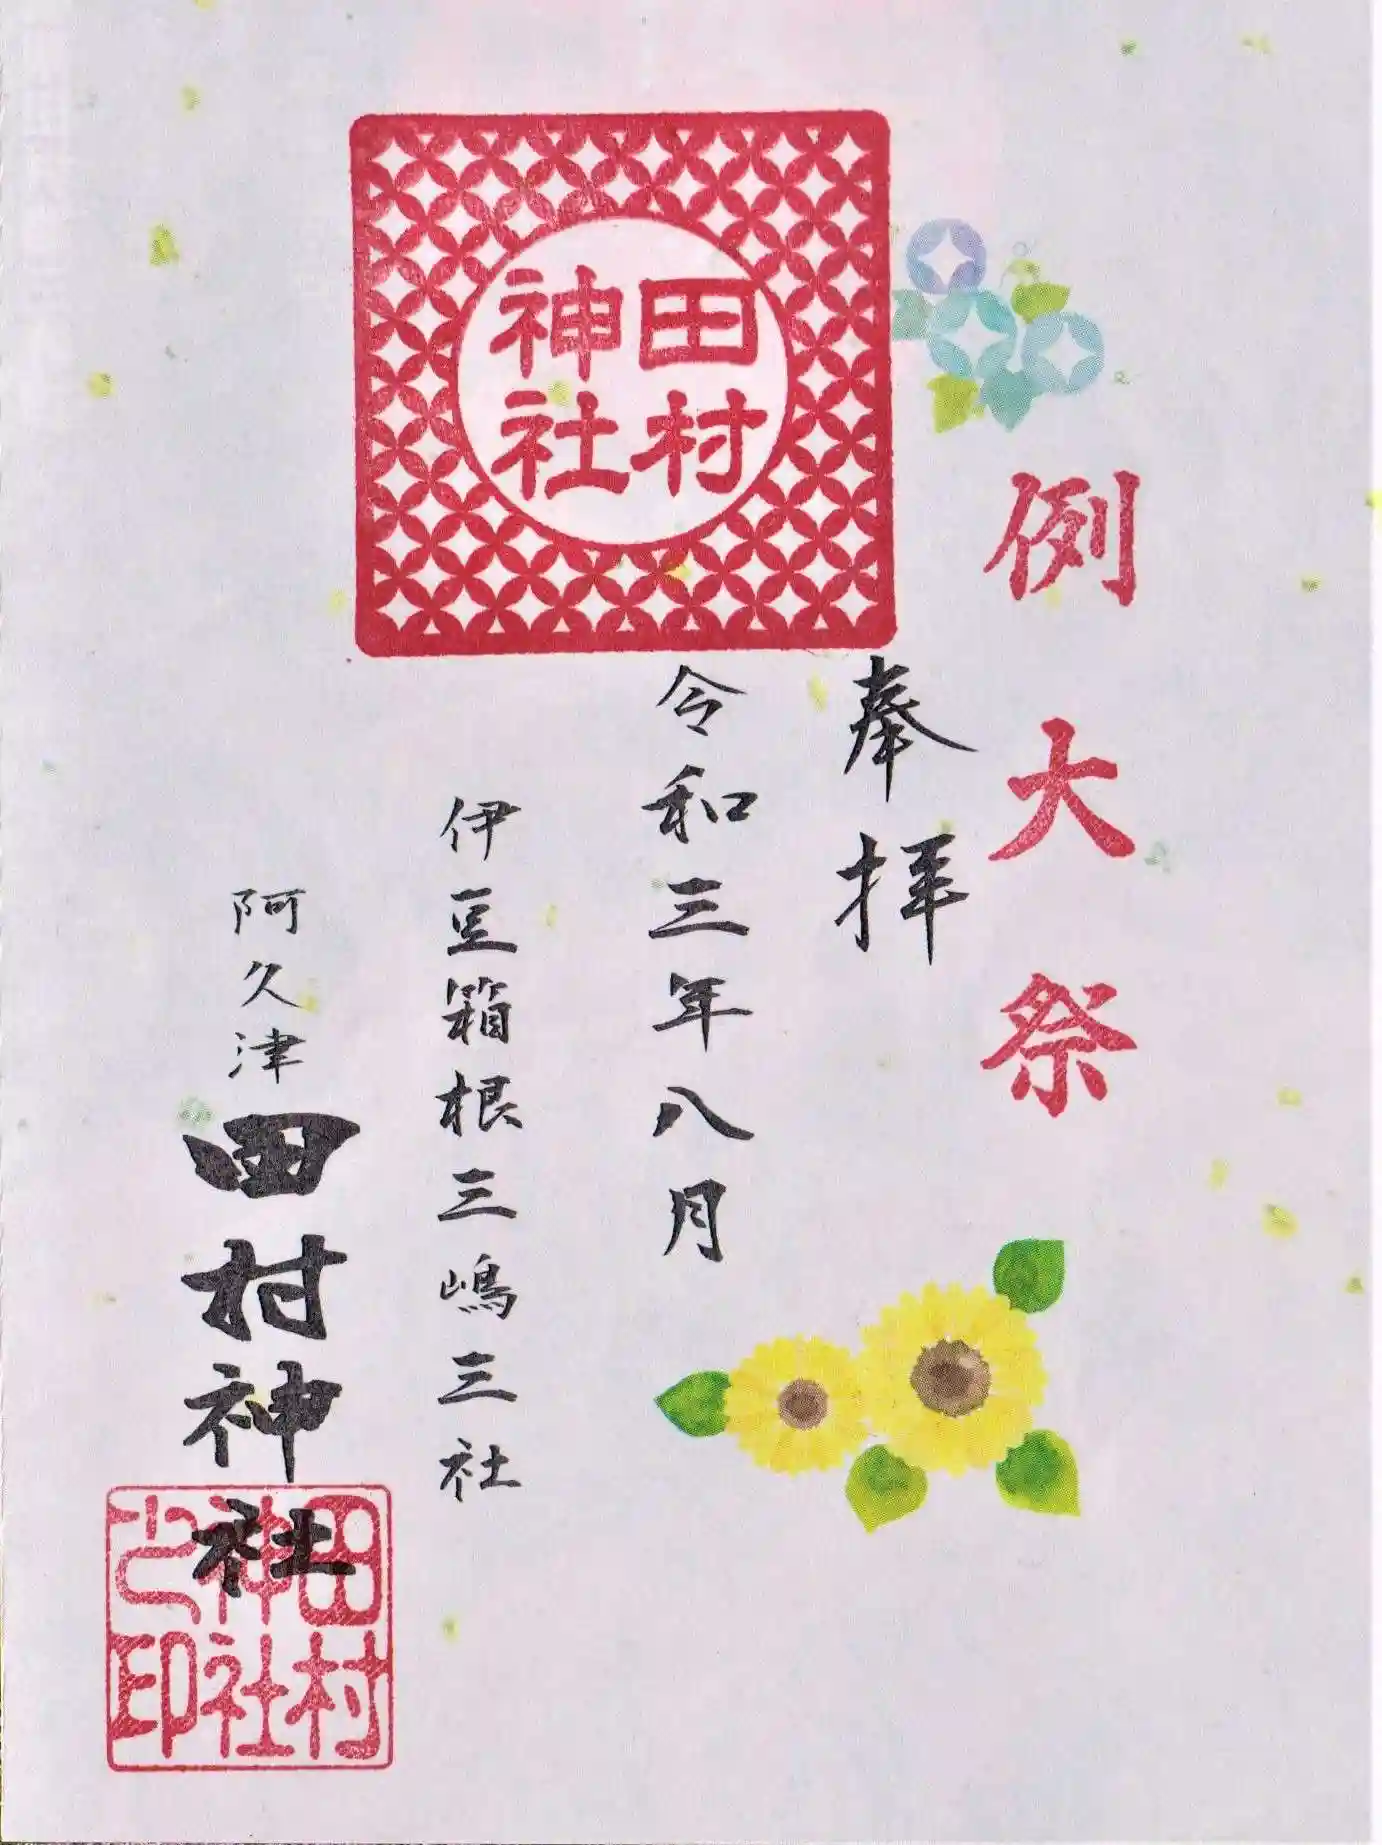 例大祭
奉拝
令和三年八月
田村
神社
伊豆箱根三嶋三社
阿久津田村神社
田村
神社
之印